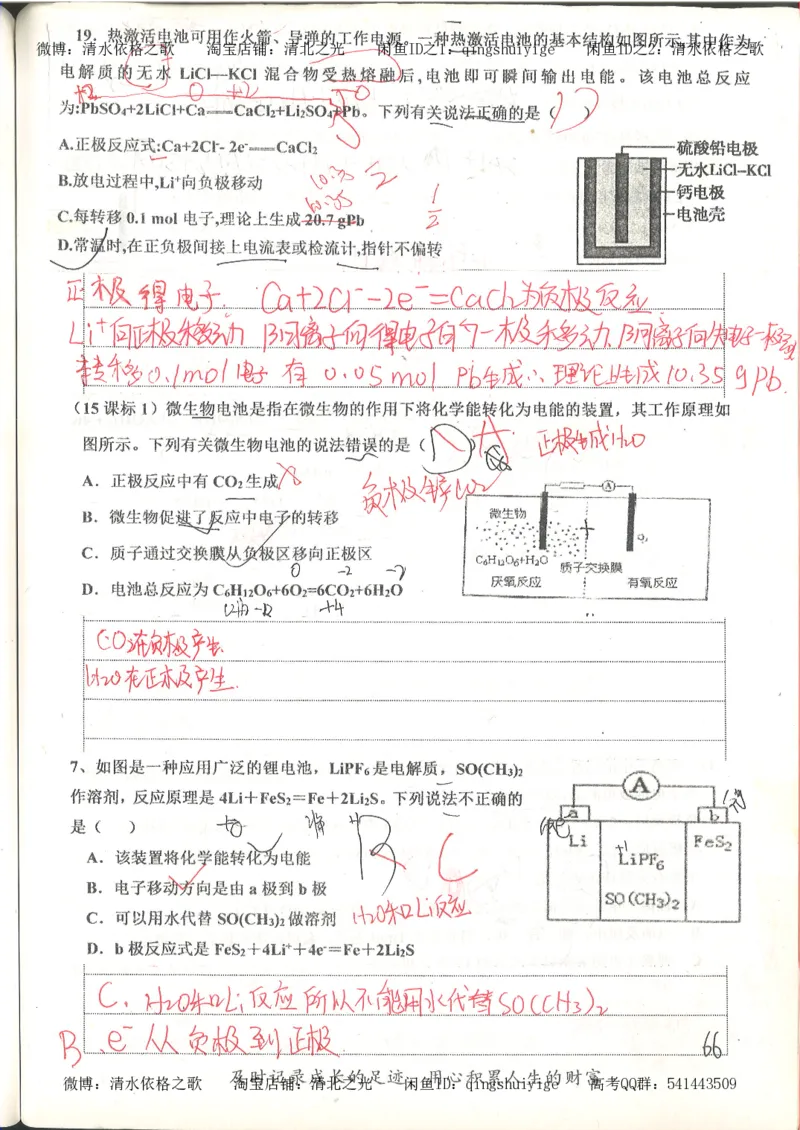 19．热激活电池可用作火箭、导弹的工作电源。一种热激活电池的基本结构如图所示,其中作为
微博：清水依格之歌 淘宝店铺：清北之光 闲鱼ID之1：qingshuiyige 闲鱼ID之2：清水依格之歌
电解质的无水 LiCl—KCl 混合物受热熔融后,电池即可瞬间输出电能。该电池总反应
+2 0 +2 0
为:PbSO₄+2LiCl+Ca===CaCl₂+Li₂SO₄+Pb。下列有关说法正确的是（ D ）
A.正极反应式:Ca+2Cl⁻- 2e⁻===CaCl₂
硫酸铅电极
无水LiCl-KCl
钙电极
电池壳
B.放电过程中,Li⁺向负极移动
10.35
10.35
C.每转移 0.1 mol 电子,理论上生成 20.7 gPb
1/2
D.常温时,在正负极间接上电流表或检流计,指针不偏转
正极得电子. Ca+2Cl⁻-2e⁻=CaCl₂为负极反应
Li⁺向正极移动 阳离子向得电子的一极移动,阴离子向失电子一极移动
转移0.1mol电子 有 0.05mol Pb生成∴理论上生成10.35gPb.
（15 课标 1）微生物电池是指在微生物的作用下将化学能转化为电能的装置，其工作原理如
图所示。下列有关微生物电池的说法错误的是（ ） A 正极生成H₂O
A．正极反应中有 CO₂ 生成 负极生成CO₂
B．微生物促进了反应中电子的转移
C．质子通过交换膜从负极区移向正极区
0 -2 -2
D．电池总反应为 C₆H₁₂O₆+6O₂=6CO₂+6H₂O
+4
A
微生物
O₂
C₆H₁₂O₆+H₂O
质子交换膜
厌氧反应 有氧反应
CO₂在负极产生.
H₂O在正极产生.
7、如图是一种应用广泛的锂电池，LiPF₆ 是电解质，SO(CH₃)₂
作溶剂，反应原理是 4Li＋FeS₂＝Fe＋2Li₂S。下列说法不正确的
是（ ） B C
A．该装置将化学能转化为电能
B．电子移动方向是由 a 极到 b 极
C．可以用水代替 SO(CH₃)₂ 做溶剂 H₂O和Li反应
D．b 极反应式是 FeS₂＋4Li⁺＋4e⁻＝Fe＋2Li₂S
A
a b
Li
+1
LiPF₆
SO(CH₃)₂
FeS₂
C. H₂O和Li反应 所以不能用水代替SO(CH₃)₂
B. e⁻从负极到正极.
66
及时记录成长的足迹 用心积累人生的财富
微博：清水依格之歌 淘宝店铺：清北之光 闲鱼ID：qingshuiyige 高考QQ群：541443509